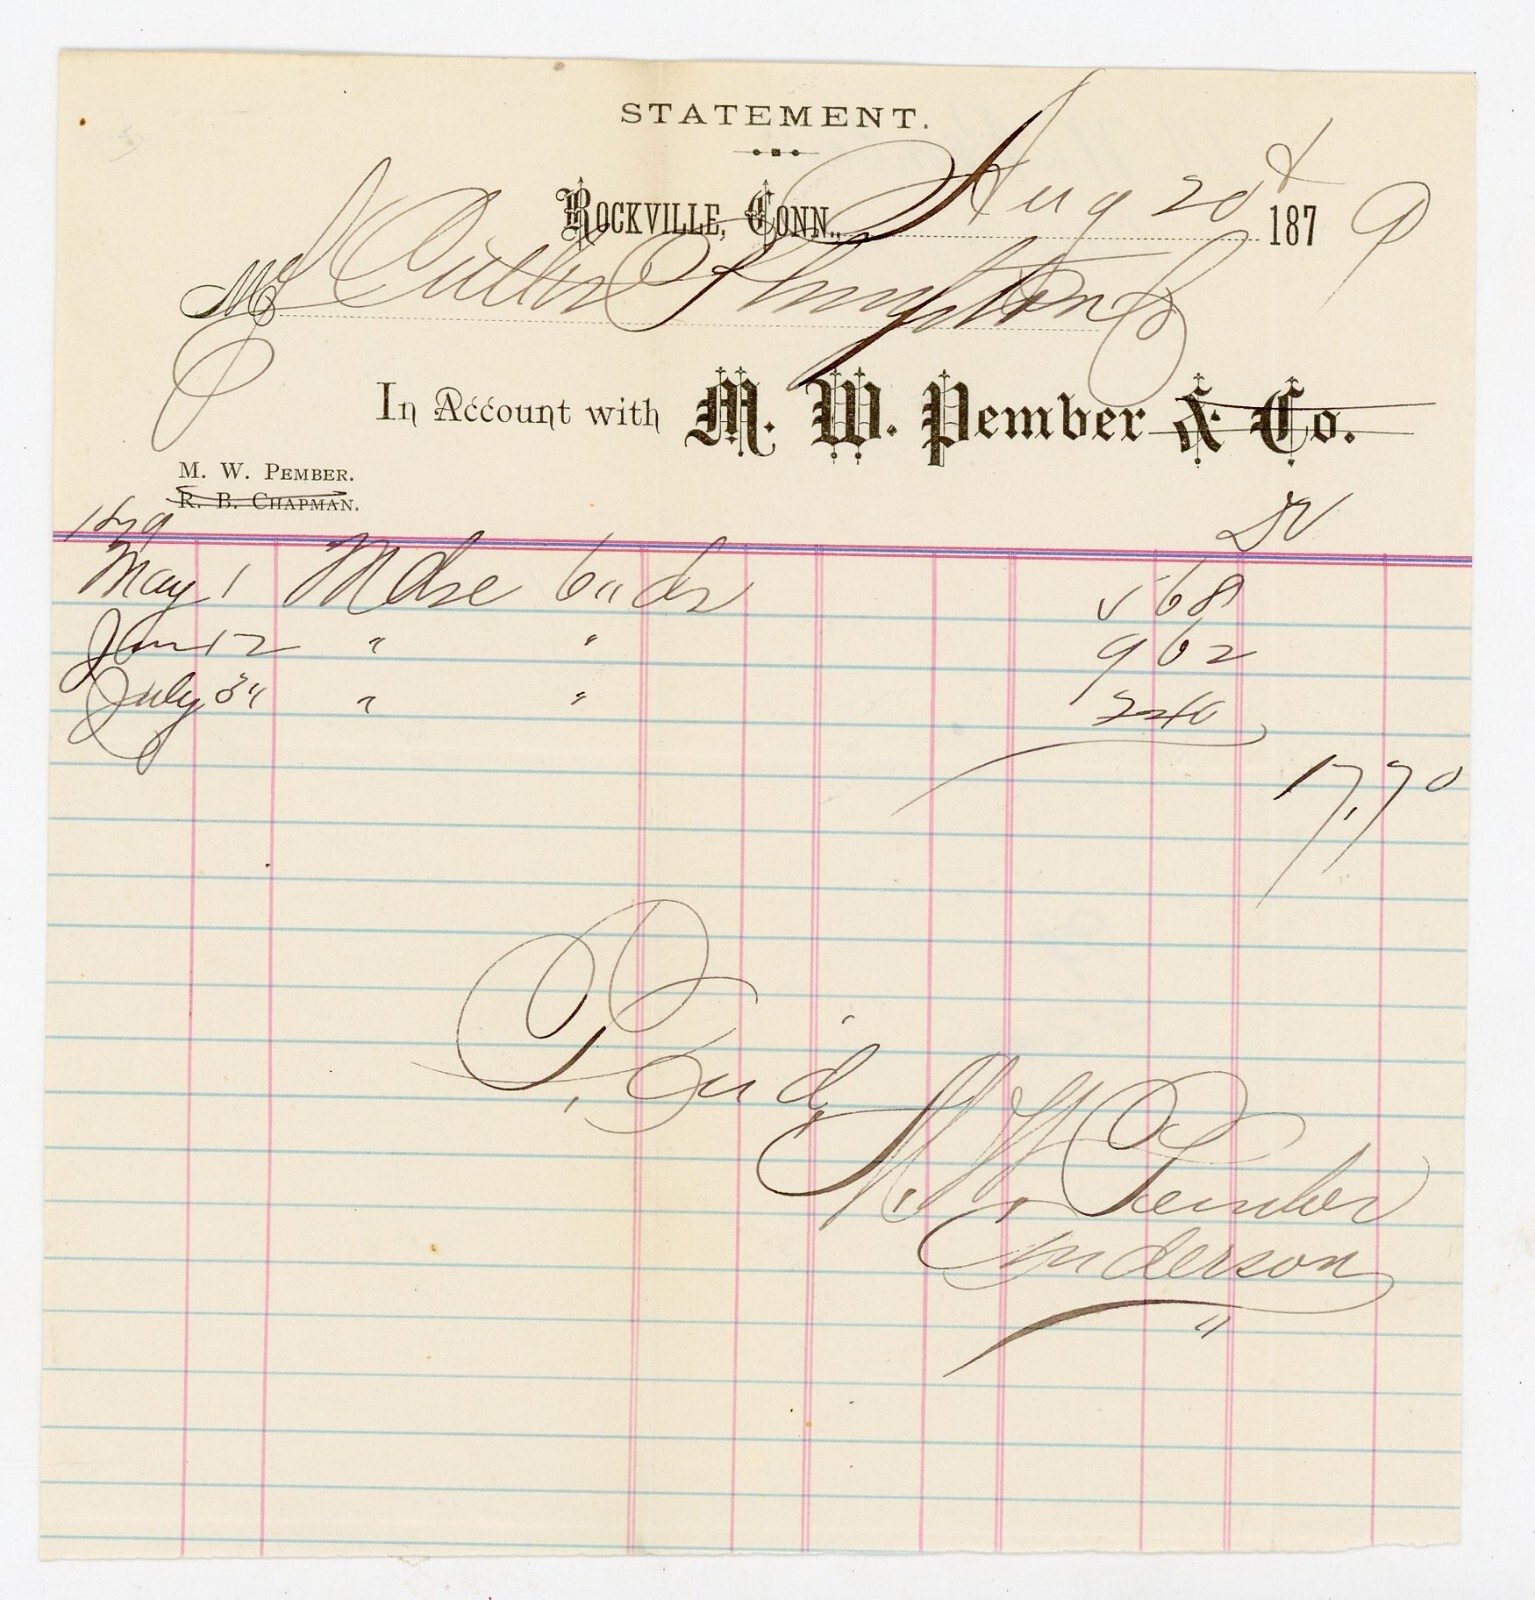 STATEMENT.
ROCKVILLE, CONN., Aug 20th 1879
M J Cutler Thompson Co
In Account with M. W. Pember & Co.
M. W. PEMBER.
R. B. CHAPMAN.
Dr
1879
May 1 Mdse 6 " ds 5 68
Jun 12 " " 9 62
July 3 " " " 2 40
17,70
Paid,
M. W. Pember
Anderson
"